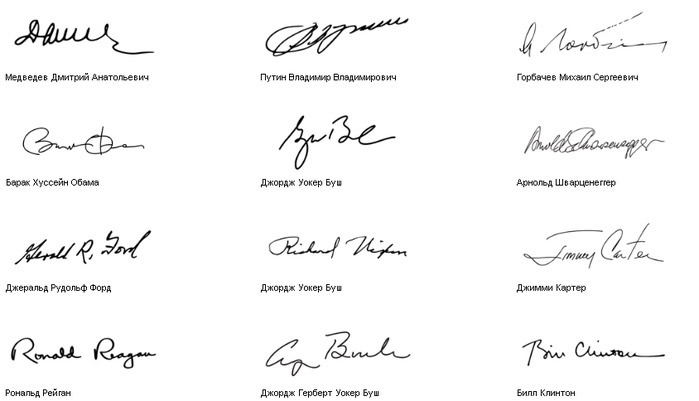 Медведев Дмитрий Анатольевич
Путин Владимир Владимирович
Горбачев Михаил Сергеевич
Барак Хуссейн Обама
Джордж Уокер Буш
Арнольд Шварценеггер
Gerald R. Ford
Richard Nixon
Jimmy Carter
Джеральд Рудольф Форд
Джордж Уокер Буш
Джимми Картер
Ronald Reagan
Bill Clinton
Рональд Рейган
Джордж Герберт Уокер Буш
Билл Клинтон